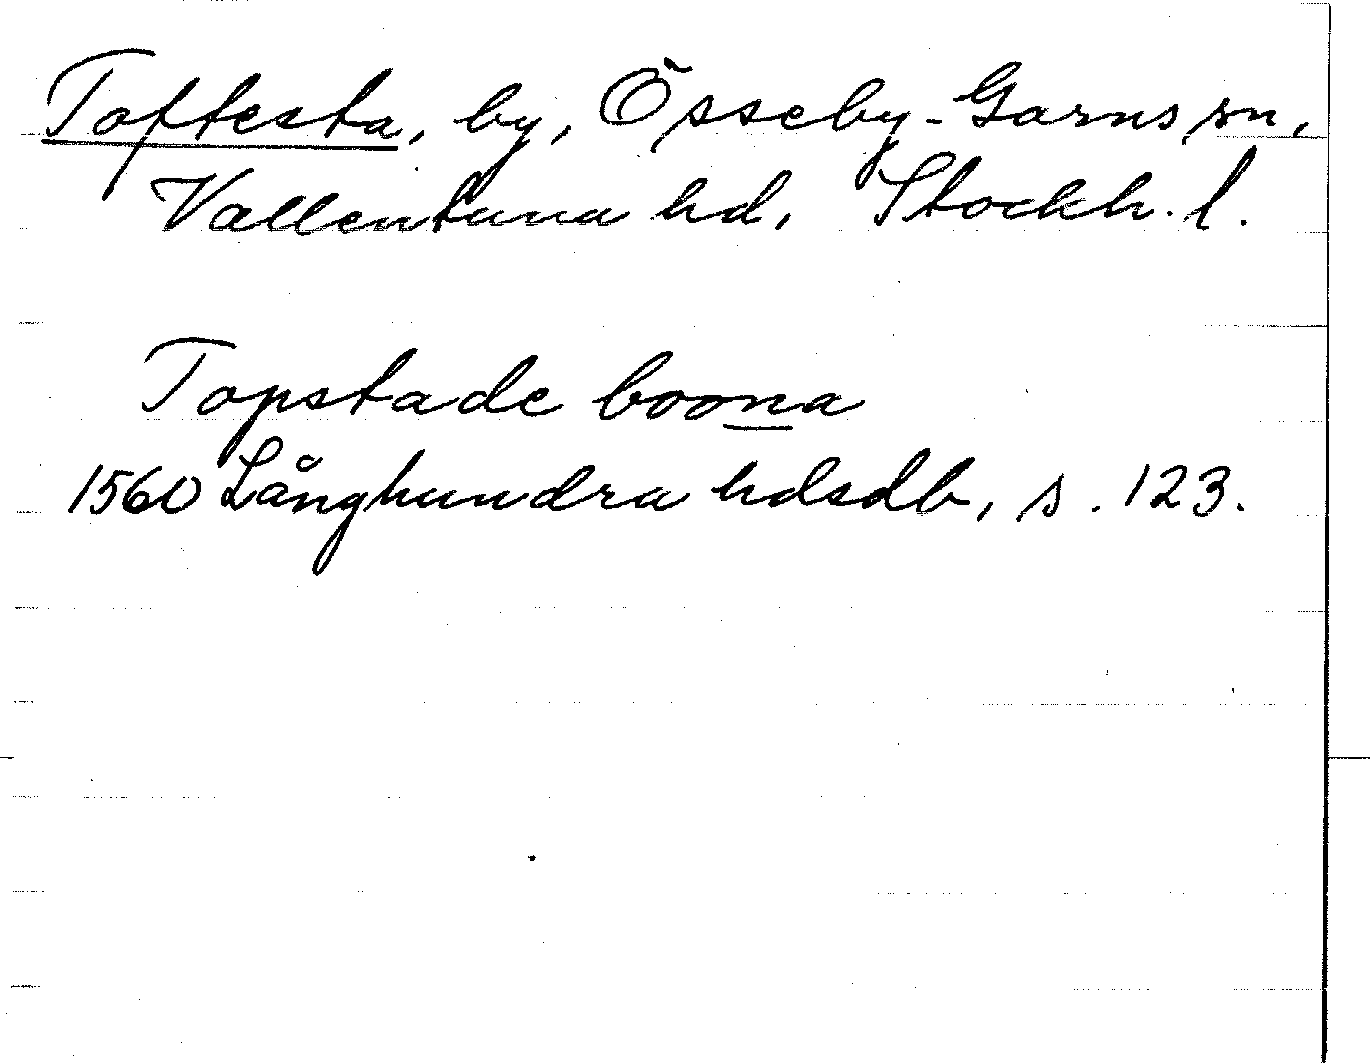 Toftesta, by, Össeby-Garns sn,
Vallentuna hd, Stockh. l.
Topstade boona
1560 Långhundra hdsdb, s. 123.